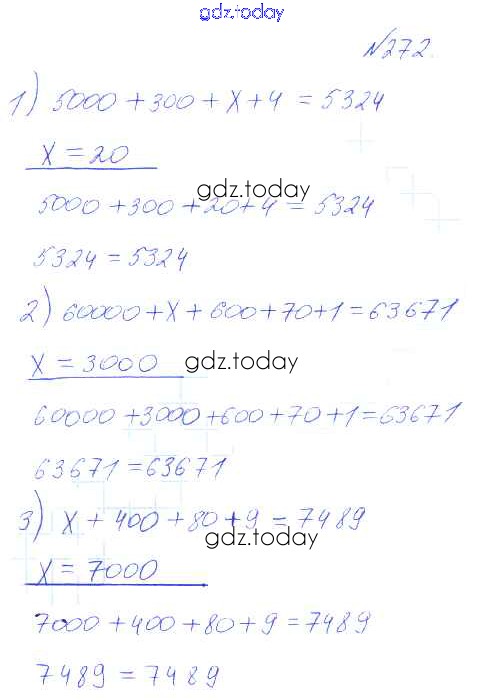 gdz.today
№272.
1) 5000 + 300 + x + 4 = 5324
x = 20
gdz.today
5000 + 300 + 20 + 4 = 5324
5324 = 5324
2) 60000 + x + 600 + 70 + 1 = 63671
x = 3000 gdz.today
60000 + 3000 + 600 + 70 + 1 = 63671
63671 = 63671
3) x + 400 + 80 + 9 = 7489
gdz.today
x = 7000
7000 + 400 + 80 + 9 = 7489
7489 = 7489